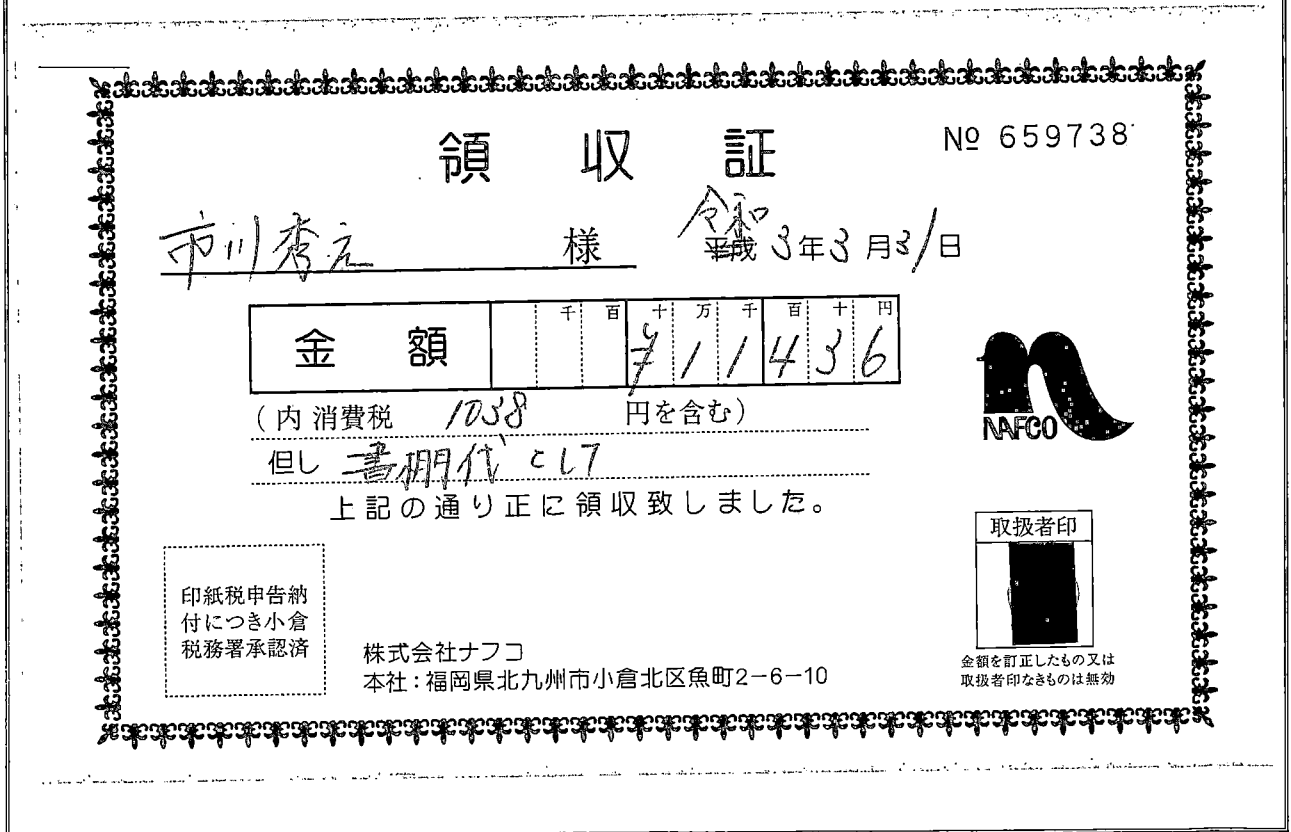 領収証
№ 659738
市川 様
令和
平成 3年3月31日
金額 千 百 十 万 千 百 十 円
¥ 1 1 4 3 6
(内消費税 1038 円を含む)
但し 書棚代として
上記の通り正に領収致しました。
NAFCO
取扱者印
印紙税申告納
付につき小倉
税務署承認済
株式会社ナフコ
本社:福岡県北九州市小倉北区魚町2-6-10
金額を訂正したもの又は
取扱者印なきものは無効